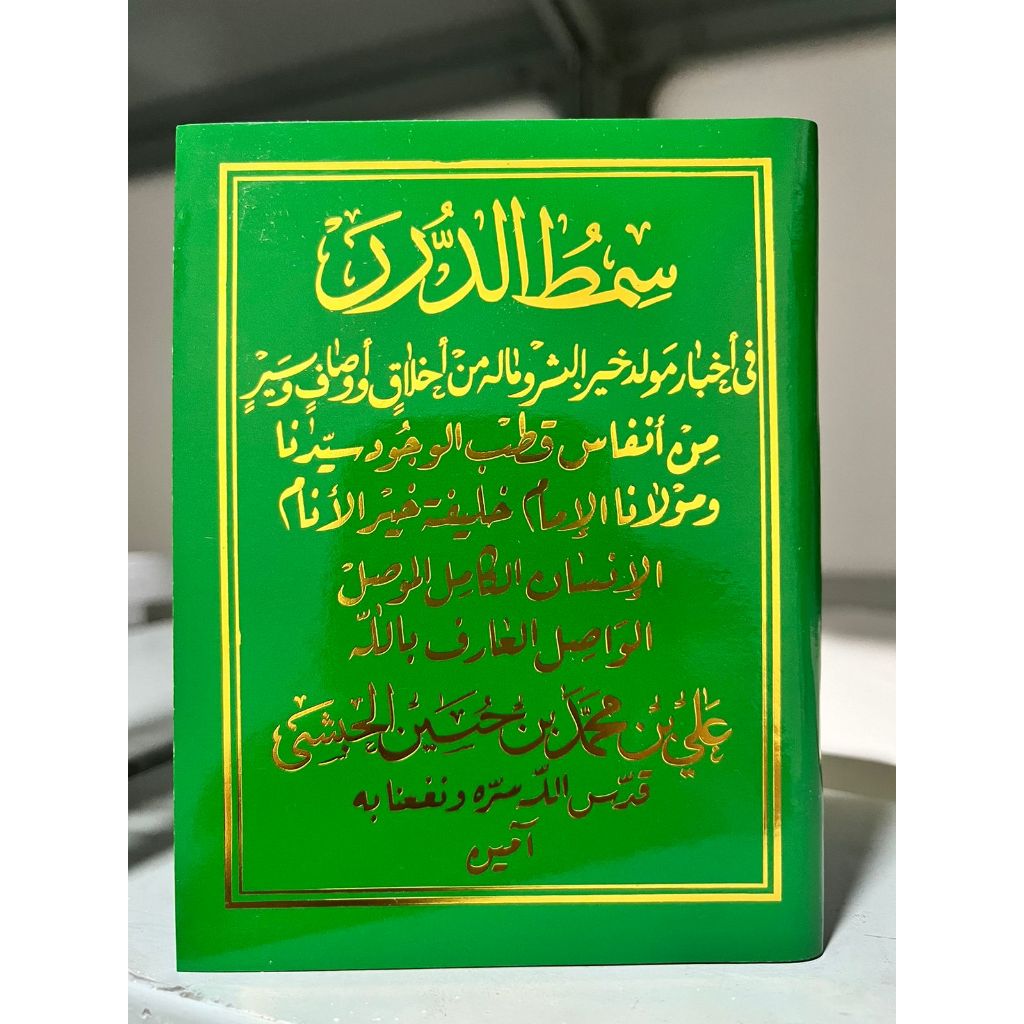 سِمْطُ الدُّرَرْ
فى أخبار مَولد خير البشر وماله منْ أخلاقٍ وأوصافٍ وسَيَرْ
مِنْ أنفاس قطب الوجُود سيّدنا
ومَوْلانا الإمام خليفة خيْر الأنام
الإنسان الكامِل الموصلْ
الوَاصِل العارف باللّٰه
عَلِيْ بْن محمَّد بنْ حُسَيْن الحبْشِى
قدّس اللّه سرّه ونفعنا به
آمين